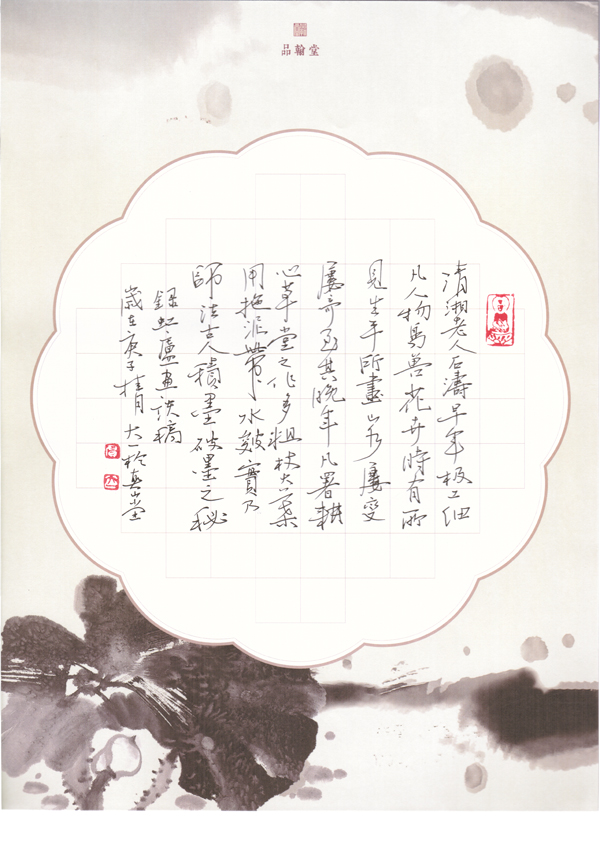 品翰堂
清湘老人石濤早年極工細
凡人物鳥兽花卉時有所
見生平所畫山水屢變
屢奇至其晚年凡署耕
心草堂之作多粗枝大葉
用拖泥帶水皴實乃
師法古人積墨破墨之秘
録虹廬畫談稿
歲在庚子桂月大一於真堂